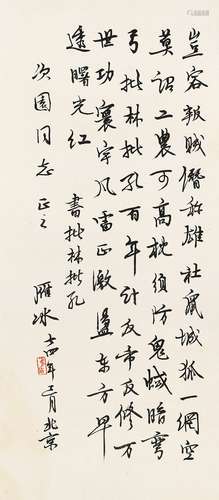 岂容叛贼僭称雄社鼠城狐一網空
莫詔工農可高枕须防鬼蜮暗弯
弓批林批孔百年计反帝反修万
世功寰宇风雷正激盪东方早
透曙光红
書批林批孔
次園同志正之
雁冰
七四年二月北京